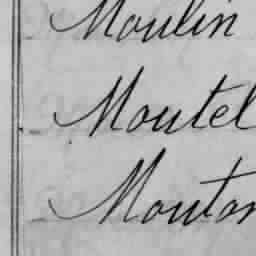 Moulin
Moutel
Mouton